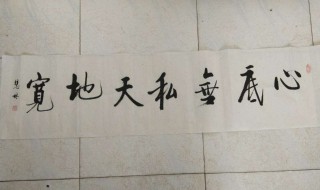 心底無私天地寬